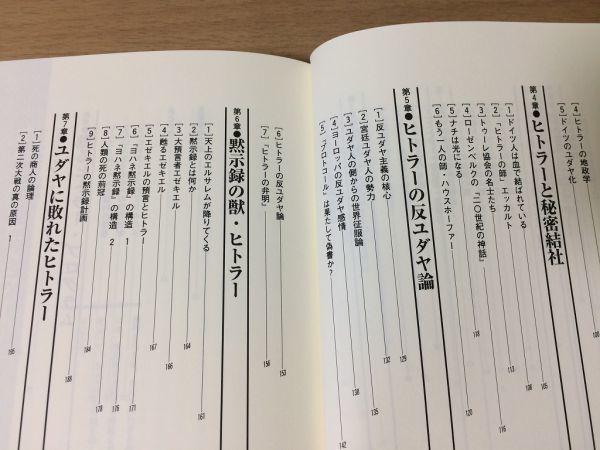 [4] ヒトラーの地政学
[5] ドイツのユダヤ化
第4章●ヒトラーと秘密結社
105
[1] ドイツ人は血で結ばれている
106
[2] 「ヒトラーの師」エッカルト
113
[3] トゥーレ協会の名士たち
116
[4] ローゼンベルクの「二〇世紀の神話」
118
[5] ナチは光になる
120
[6] もう一人の師・ハウスホーファー
第5章●ヒトラーの反ユダヤ論
129
[1] 反ユダヤ主義の核心
132
[2] 宮廷ユダヤ人の勢力
135
[3] ユダヤ人の側からの世界征服論
138
[4] ヨーロッパの反ユダヤ感情
142
[5] 「プロトコール」は果たして偽書か?
[6] ヒトラーの反ユダヤ論
153
[7] 「ヒトラーの非明」
156
第6章●黙示録の獣・ヒトラー
[1] 天上のエルサレムが降りてくる
161
[2] 黙示録とは何か
[3] 大預言者エゼキエル
164
[4] 甦るエゼキエル
166
[5] エゼキエルの預言とヒトラー
167
[6] 『ヨハネ黙示録』の構造 1
171
[7] 『ヨハネ黙示録』の構造 2
176
[8] 人類の死の荊冠
178
[9] ヒトラーの黙示録計画
184
第7章●ユダヤに敗れたヒトラー
189
[1] 死の商人の論理
[2] 第二次大戦の真の原因 1
195